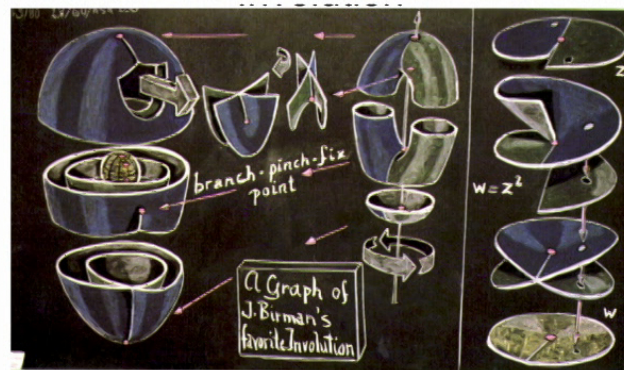 Z
branch-pinch-fix
point
W = Z²
A Graph of
J. Birman's
favorite Involution
W